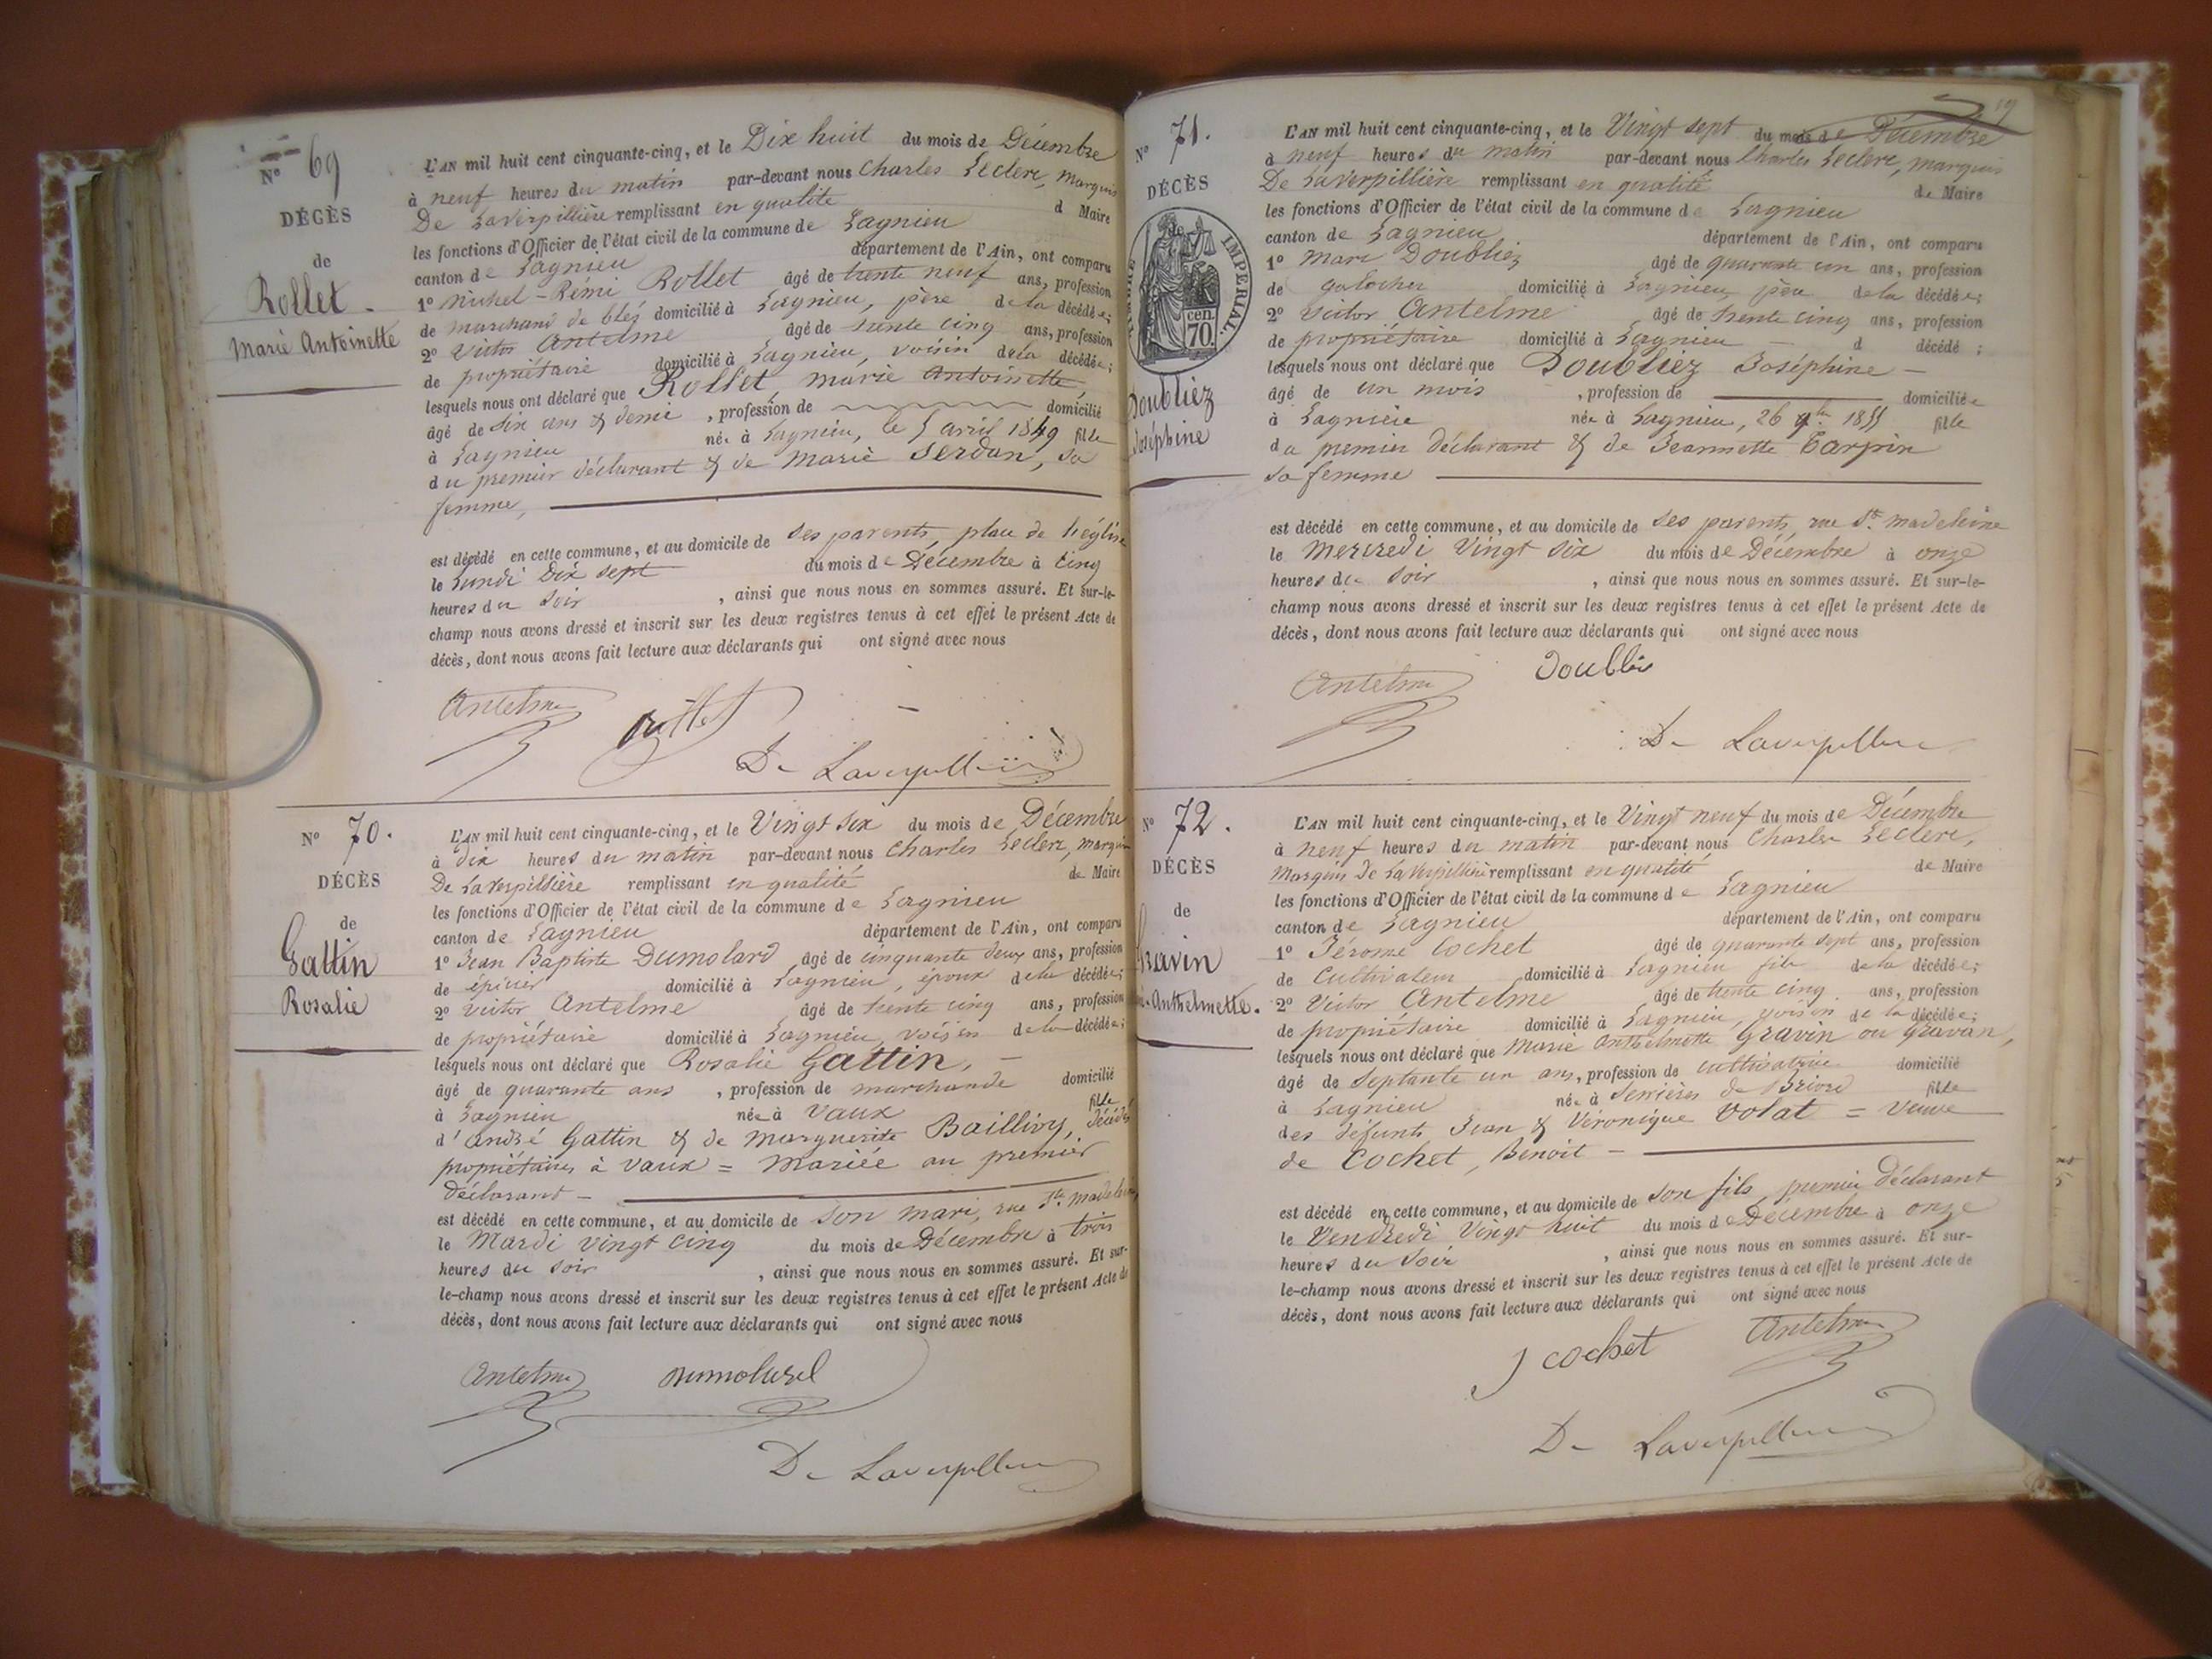 Nº 69
DÉCÈS
de
Rollet
Marie Antoinette
L'AN mil huit cent cinquante-cinq, et le Dix huit du mois de Décembre
à neuf heures du matin par-devant nous Charles Leclerc, Marquis
De Laverpillière remplissant en qualité d Maire
les fonctions d'Officier de l'état civil de la commune de Lagnieu
canton de Lagnieu département de l'Ain, ont comparu
1º Michel-Rémi Rollet âgé de trente neuf ans, profession
de marchand de blés domicilié à Lagnieu, père de la décédée;
2º Victor Antelme âgé de trente cinq ans, profession
de propriétaire domicilié à Lagnieu, voisin de la décédée;
lesquels nous ont déclaré que Rollet, Marie Antoinette,
âgé de six ans & demi, profession de domicilié
à Lagnieu née à Lagnieu, le 5 avril 1849 fille
du premier déclarant & de Marie Serdon, sa
femme,
est décédé en cette commune, et au domicile de ses parents, place de l'église
le Lundi Dix sept du mois de Décembre à cinq
heures du soir, ainsi que nous nous en sommes assuré. Et sur-le-
champ nous avons dressé et inscrit sur les deux registres tenus à cet effet le présent Acte de
décès, dont nous avons fait lecture aux déclarants qui ont signé avec nous
Antelme Rollet
De Laverpillière
Nº 70.
DÉCÈS
de
Gattin
Rosalie
L'AN mil huit cent cinquante-cinq, et le Vingt six du mois de Décembre
à dix heures du matin par-devant nous Charles Leclerc, marquis
De Laverpillière remplissant en qualité de Maire
les fonctions d'Officier de l'état civil de la commune de Lagnieu
canton de Lagnieu département de l'Ain, ont comparu
1º Jean Baptiste Dumolard âgé de cinquante deux ans, profession
de épicier domicilié à Lagnieu, époux de la décédée;
2º Victor Antelme âgé de trente cinq ans, profession
de propriétaire domicilié à Lagnieu, voisin de la décédée;
lesquels nous ont déclaré que Rosalie Gattin,
âgé de quarante ans, profession de marchande domicilié
à Lagnieu née à Vaux fille
d'André Gattin & de Marguerite Baillivy, décédés
propriétaires à Vaux = Mariée au premier
déclarant
est décédé en cette commune, et au domicile de son mari, rue Ste Madeleine
le Mardi vingt cinq du mois de Décembre à trois
heures du soir, ainsi que nous nous en sommes assuré. Et sur-
le-champ nous avons dressé et inscrit sur les deux registres tenus à cet effet le présent Acte de
décès, dont nous avons fait lecture aux déclarants qui ont signé avec nous
Antelme Dumolard
De Laverpillière
19
Nº 71.
DÉCÈS
de
TIMBRE IMPERIAL.
70. cen.
Doubliez
Joséphine
L'AN mil huit cent cinquante-cinq, et le Vingt sept du mois de Décembre
à neuf heures du matin par-devant nous Charles Leclerc, marquis
De Laverpillière remplissant en qualité de Maire
les fonctions d'Officier de l'état civil de la commune de Lagnieu
canton de Lagnieu département de l'Ain, ont comparu
1º Marc Doubliez âgé de quarante un ans, profession
de galocher domicilié à Lagnieu, père de la décédée;
2º Victor Antelme âgé de trente cinq ans, profession
de propriétaire domicilié à Lagnieu d décédé;
lesquels nous ont déclaré que Doubliez Joséphine
âgé de un mois, profession de domiciliée
à Lagnieu née à Lagnieu, 26 9bre 1855 fille
du premier déclarant & de Jeannette Carpin
sa femme
est décédé en cette commune, et au domicile de ses parents, rue Ste Madeleine
le Mercredi Vingt six du mois de Décembre à onze
heures du soir, ainsi que nous nous en sommes assuré. Et sur-le-
champ nous avons dressé et inscrit sur les deux registres tenus à cet effet le présent Acte de
décès, dont nous avons fait lecture aux déclarants qui ont signé avec nous
Antelme Doubliez
De Laverpillière
Nº 72.
DÉCÈS
de
Gravin
Anthelmette.
L'AN mil huit cent cinquante-cinq, et le Vingt neuf du mois de Décembre
à neuf heures du matin par-devant nous Charles Leclerc,
Marquis De Laverpillière remplissant en qualité de Maire
les fonctions d'Officier de l'état civil de la commune de Lagnieu
canton de Lagnieu département de l'Ain, ont comparu
1º Jérome Cochet âgé de quarante sept ans, profession
de Cultivateur domicilié à Lagnieu fils de la décédée;
2º Victor Antelme âgé de trente cinq ans, profession
de propriétaire domicilié à Lagnieu, voisin de la décédée;
lesquels nous ont déclaré que Marie Anthelmette Gravin ou Gravan,
âgé de Septante un ans, profession de cultivatrice domicilié
à Lagnieu née à Serrières de Briord fille
des défunts Jean & Véronique Volat = Veuve
de Cochet, Benoit
est décédé en cette commune, et au domicile de son fils, premier déclarant
le Vendredi Vingt huit du mois de Décembre à onze
heures du Soir, ainsi que nous nous en sommes assuré. Et sur-
le-champ nous avons dressé et inscrit sur les deux registres tenus à cet effet le présent Acte de
décès, dont nous avons fait lecture aux déclarants qui ont signé avec nous
J Cochet Antelme
De Laverpillière